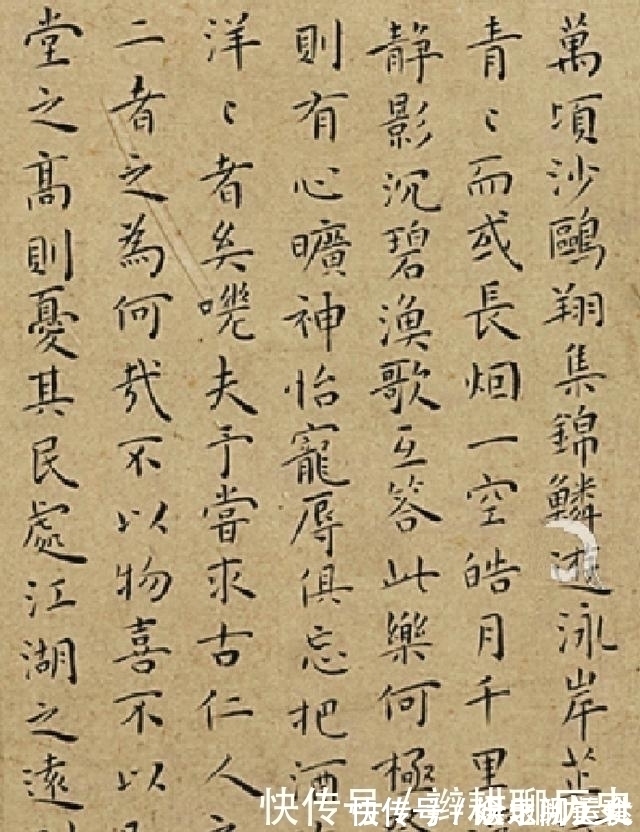 萬頃沙鷗翔集錦鱗游泳岸芷
青〻而或長烟一空皓月千里
静影沉碧漁歌互答此樂何極
則有心曠神怡寵辱俱忘把酒
洋〻者矣嗟夫予嘗求古仁人
二者之為何哉不以物喜不以
堂之高則憂其民處江湖之遠
快传号/辫耕聊历史
快传号/